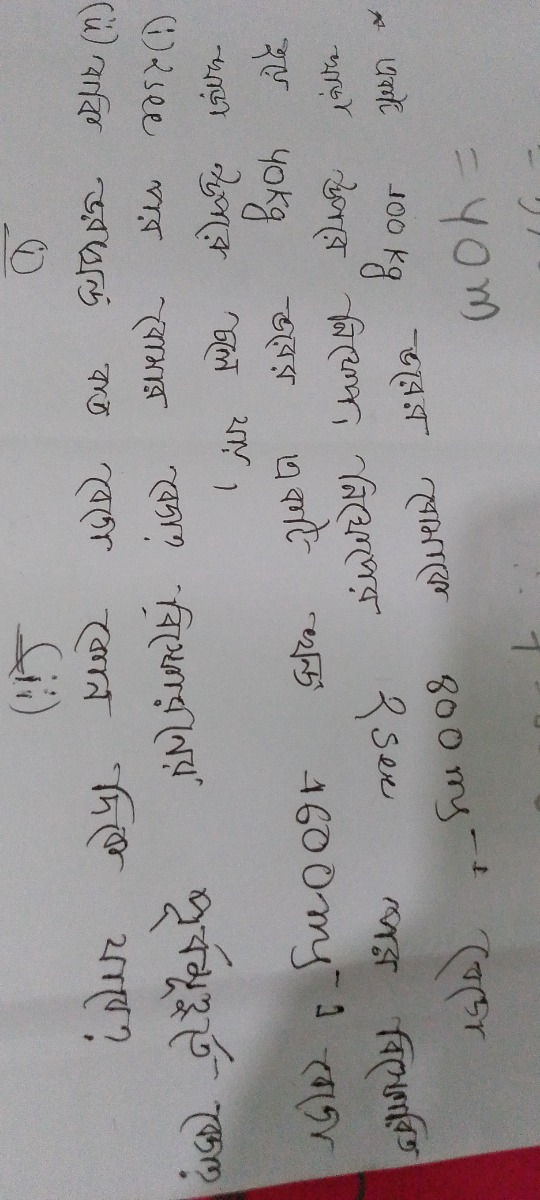 = 40 m
* একটি 100 kg ভরের বোমাকে 800 ms⁻¹ বেগে
খাড়া উপরে নিক্ষেপ, নিক্ষেপের ২ sec পর বিস্ফোরিত
হয়ে 40kg ভরের একটি খন্ড 1600 ms⁻¹ বেগে
খাড়া উপরে চলে যায়।
(i) ২sec পর বোমার বেগ? পূর্বমুহূর্তে বেগ?
(ii) বাকি ভরখন্ড কত বেগে কোন দিকে যাবে?
(i) (ii)